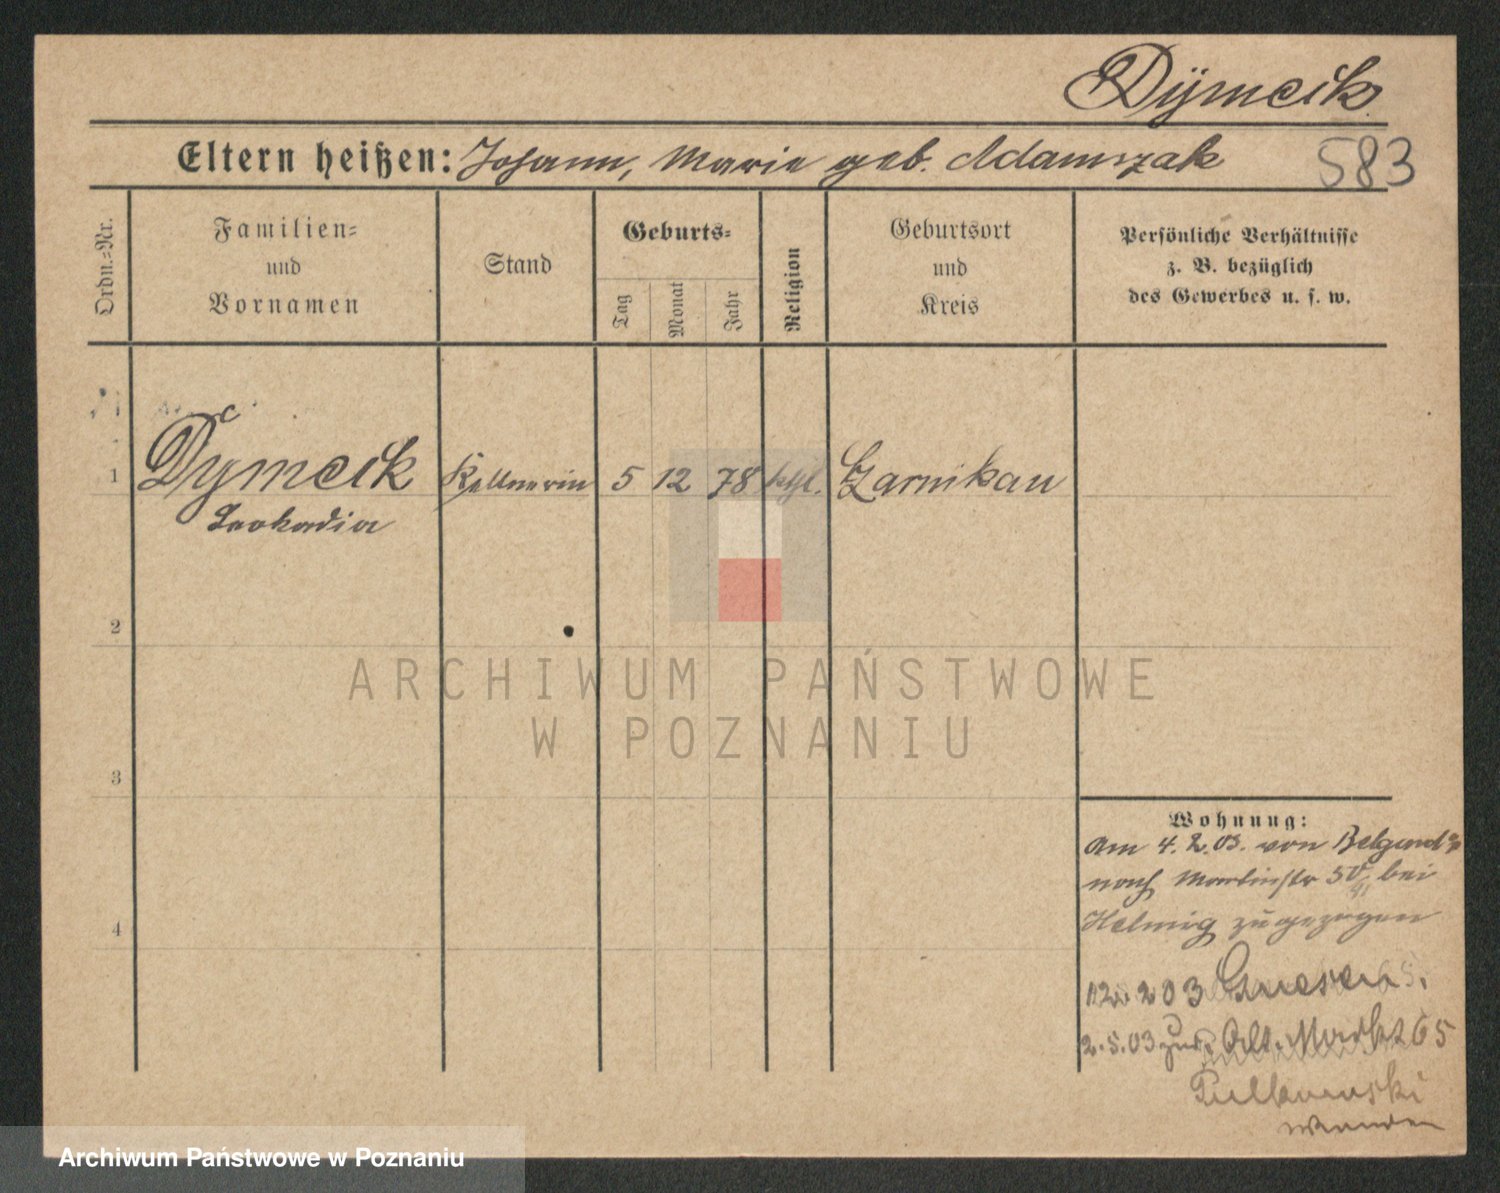 Dÿmcik.
Eltern heißen: Johann, Marie geb. Adamszak
583
Ordn.-Nr.
Familien-
und
Vornamen
Stand
Geburts-
Tag
Monat
Jahr
Religion
Geburtsort
und
Kreis
Persönliche Verhältnisse
z. B. bezüglich
des Gewerbes u. s. w.
1 Dÿmcik Kellnerin 5 12 78 ktl. Czarnikau
Leokadia
2
3
4
Wohnung:
Am 4.2.03. von
nach Martinstr 50 bei
Helmig zugezogen
12. 2 03 Gnesen.
2.5.03 zur. Alt. Markt 65
ARCHIWUM PAŃSTWOWE
W POZNANIU
Archiwum Państwowe w Poznaniu